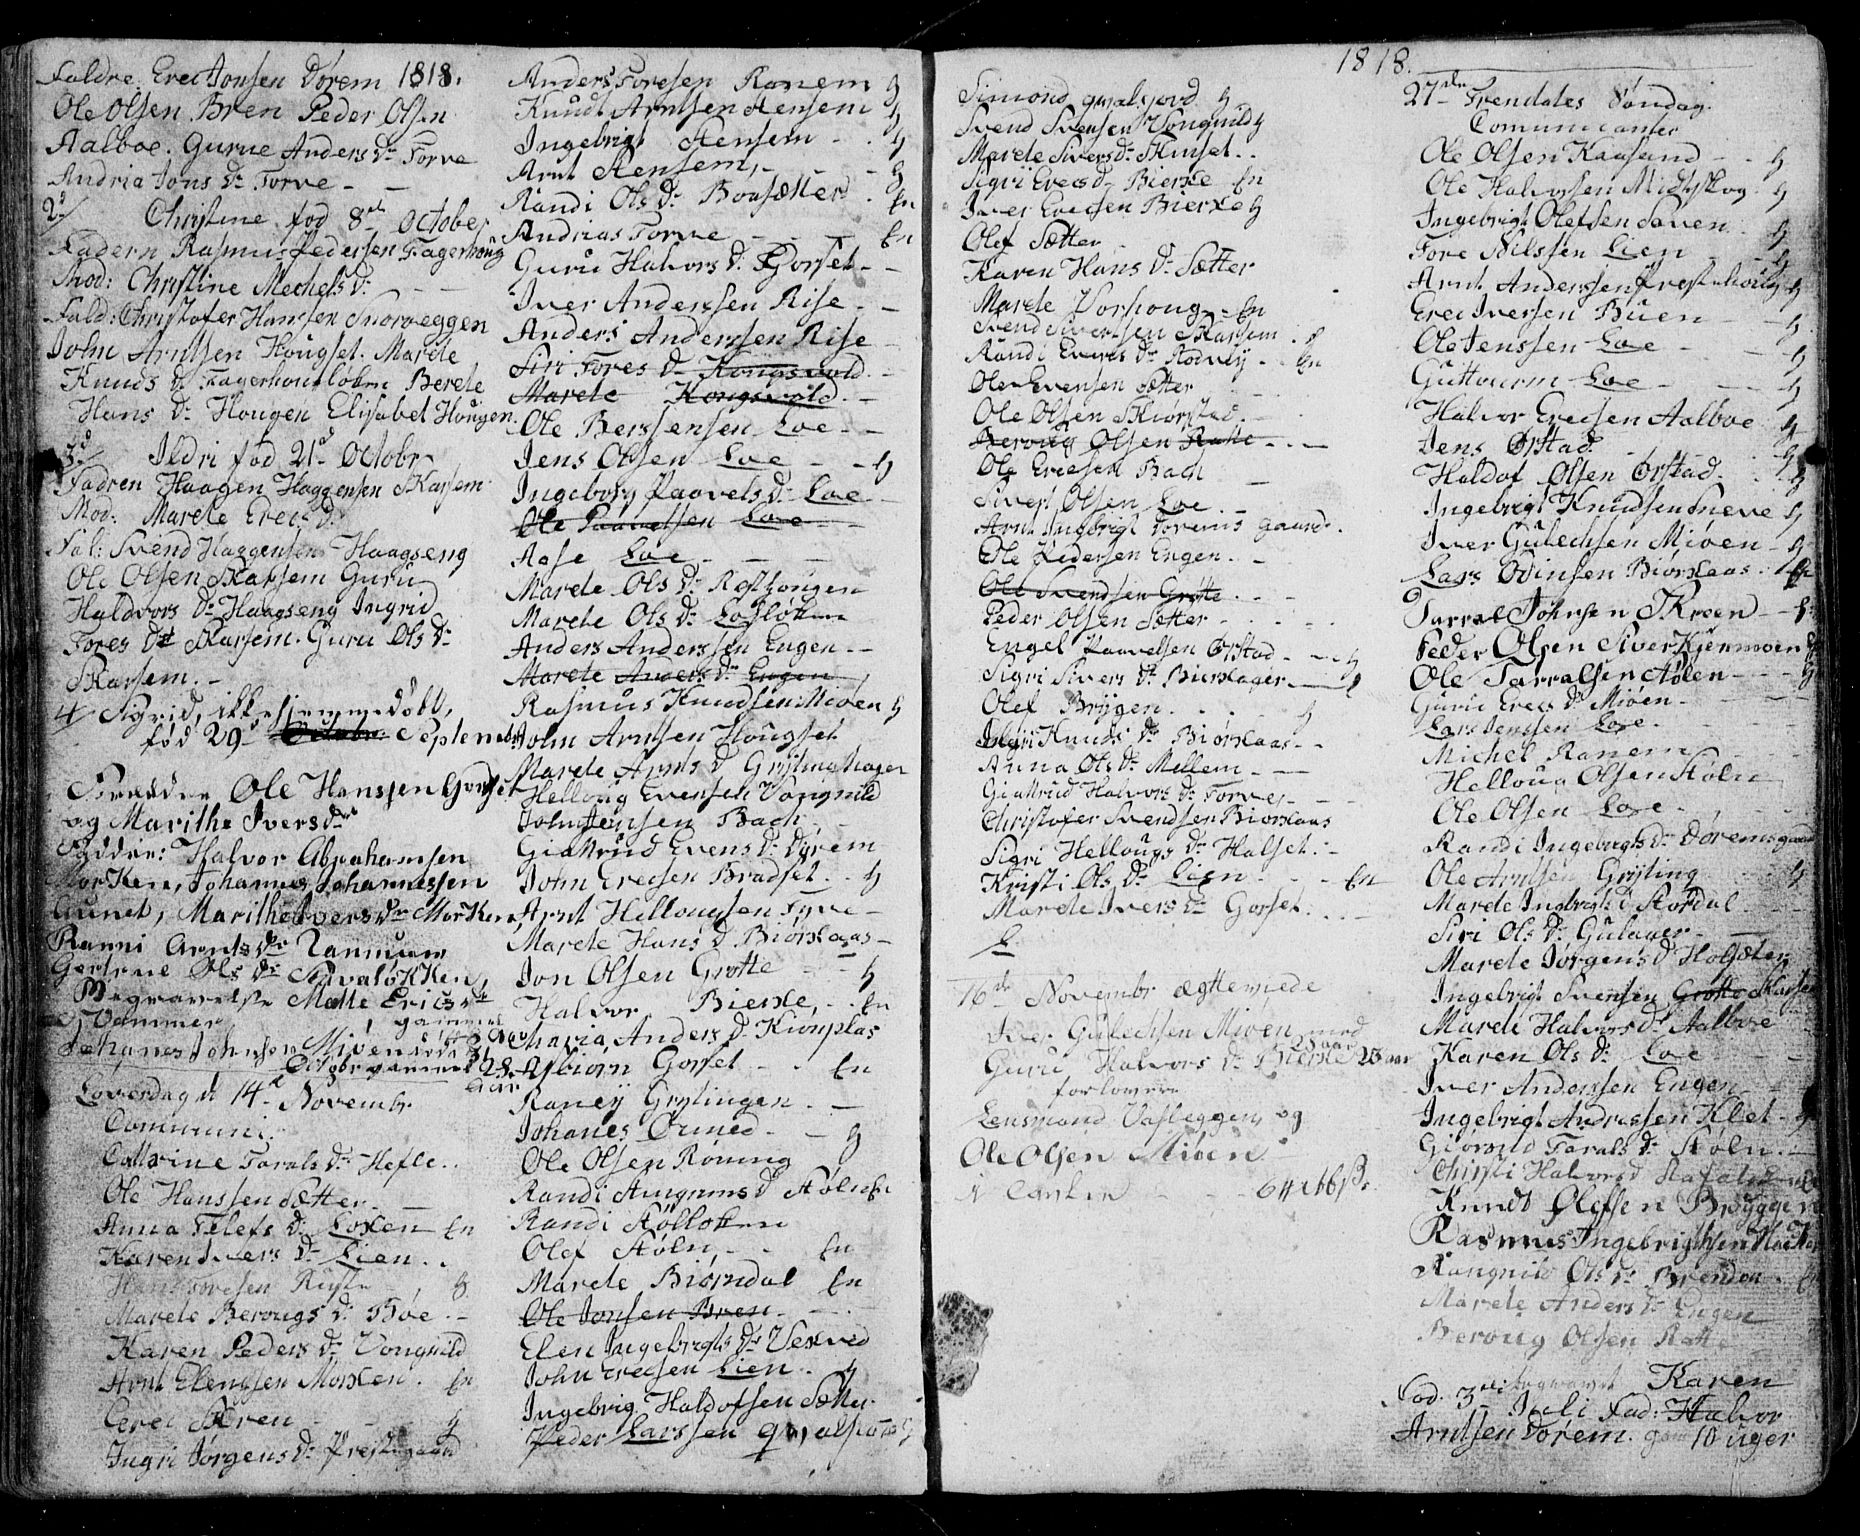 Faldre. Erec Jonsen Dørem 1818.
Ole Olsen Bren Peder Olsen
Aalboe. Gurue Anders Dr Torve
Andria Jons Dr Torve - -
2d/ Christine fød 8de October
Fadern Rasmus Pedersen Fagerhoug
Mod: Christine Mechels Dr
Fald: Christofer Hanssen Snorveggen
John Arntsen Hougset. Marete
Knuds Dr Fagerhoug Berete
Hans Dr Hougen Elisabet Hougen
3d/ Ildri fød 21d Octobr
Fadren Haagen Haggensen Skarsem
Mod: Marete Erecs Dr
Fal: Svend Haggensen Haagseng
Ole Olsen Skarsem Guru
Haldvors Dr Haagseng Ingrid
Tores Dr Skarsem. Guru Ols Dr
Skarsem. -
4/ Sigrid, ikke hiemmedøbt,
fød 29d Octobr Septembr
Forældre Ole Hanssen Gorset
og Marithe Ivers Dr
Fadder: Halvor Abrahamsen
Morken, Johannes Johannessen
Aunet, Marithe Ivers Dr Morken
Ranni Arnts Dr Tammum
Gertrue Ols Dr
Begravelse Malte Erics Dr
Vammer gammel
Johanes Johnsen Miøen
Octobr gammel 28
aar
Løverdag d 14de Novembr
Communi.
Cathrine Tarals Dr Hefle..
Ole Hanssen Sætter - -
Anna Telefs Dr Loxen En
Karen Ivers Dr Lien..
Hans Toresen Reise 8
Marete Berougs Dr Bøe. -
Karen Peders Dr Vongnild
Arnt Elengsen Morxen. En
Cerec Bren - - - 8
Ingri Jørgens Dr Prestegaard
Anders Toresen Ranem 8
Knudt Arntsen Stensem 8
Ingebrigt Stensem - - 8
Arnt Stensem, - - 8
Randi Ols Dr Boasætter. En
Andrias Torve - - - En
Guru Halvors Dr Gorset - -
Iver Anderssen Rise - -
Anders Anderssen Rise -
Siri Tores Dr Kongsvold -
Marete Kongsvold. -
Ole Berssensen Loe - -
Jens Olsen Loe - - 8
Ingeborg Paavels Dr Loe -
Ole Paavelsen Loe -
Aase Loe - - -
Marete Ols Dr Rosthougen
Marete Ols Dr Losløkken
Anders Anderssen Engen - -
Marete Anders Dr Engen
Rasmus Knudsen Miøen 8
John Arntsen Hougset
Marete Arnts D Grytinghagen
Helloug Evensen Vongnild
John Jensen Bach -
Giøttrud Evens Dr Dørem
John Erecsen Bradset - - 8
Arnt Hellougsen Tyve -
Marete Hans D Biørkaas -
Jon Olsen Grøtte - - 8
Halvor Bierxe, - - En
Maria Anders D Kiønplas
Asbiørn Gorset - - En
Raney Grytingen - -
Johanes Ormed - - 8
Ole Olsen Røning
Randi Amgrims D Stølen
Randi Støllokken
Olef Stølen, - - En
Marete Biørndal En
Ole Jonsen Bren - -
Elen Ingebrigts Dr Vexved
John Erecsen Lien - 8
Ingebrig. Haldofsen Sætter.
Peder Larssen qvalsiord 8
1818.
Simond qvalsjord 8
Svend Svensen Vongnild 8
Marete Sivers Dr Skinset..
Sigri Erecs Dr Bierxe En
Iver Erecsen Bierxe 8
Olef Sætter -
Karen Hans Dr Sætter
Marete Vorhoug - En
Svend Sivertsen Skarsem. 8
Randi Evens Dr Rodvey - En
Ole Evensen Sætter - -
Ole Olsen Skiørstad - -
Beroug Olsen Ratte - - -
Ole Erecsen Bach -
Sivert Olsen Loe. -
Arnt Ingebrigt Dørems gaard.
Ole Pedersen Engen. -
Ole Svendsen Grøtte. - -
Peder Olsen Sætter - - -
Engel Paavelsen Ørstad - - 8
Sigri Sivers Dr Bierxager - 8
Olef Brygen - - - 8
Ingri Knuds Dr Biørxaas - -
Anna Ols Dr Mellem - -
Giøttrud Halvors Dr Torve - -
Christofer Svendsen Biørxaas
Sigri Hellougs Dr Halset. -
Kristi Ols Dr Lien - - - En
Marete Ivers Dr Gorset. - -
16de Novembr ægteviede
Iver Gulechsen Miøen med
25 aar
Guru Halvors Dr Bierxe 23 aar
forlovere
Lensmand Vasleggen og
Ole Olsen Miøen -
27de Trendates Søndag.
Comunicanter
Ole Olsen Kaasund - - 8
Ole Halvorsen Midtskog 8
Ingebrigt Olefsen Saven. 8
Tore Nilssen Lien - - 8
Arnt Anderssen Prestehoug 8
Erec Iversen Buen - - 8
Ole Jenssen Loe - - 8
Guttourm Loe - - - 8
Halvor Erecsen Aalboe 8
Jens Ørstad. - - - 8
Haldof Olsen Ørstad. - - 8
Ingebrigt Knudsen Sneve 8
Iver Gulechsen Miøen - 8
Lars Odinsen Biørxaas. En
Tarral Johnsen Skreen - - 8
Peder Olsen Siver Kjermoen 8
Ole Tarralsen Stølen - - - 8
Guru Erecs Dr Miøen - -
Lars Jenssen Loe. -
Michel Ranem - -
Helloug Olsen Støln
Ole Olsen Loe -
Randi Ingebrigts Dr Dørems gaard
Ole Arntsen Gryting - - 8
Marete Ingebrigts D Stordal -
Siri Ols Dr Gulager -
Marete Jørgens D Holsæter
Ingebrigt Svensen Grøtte Skarsem
Marete Halvors Dr Aalboe -
Karen Ols Dr Loe - -
Iver Anderssen Engen
Ingebrigt Andressen Klet - 8
Giørond Tarals Dr Støln. -
Christi Halvors D
Knudt Olefsen Bryggen
Rasmus Ingebrigtsen
Rangnild Ols Dr Brenden. En
Marete Anders Dr Engen
Beroug Olsen Ratte
begravet Karen
Fød. 3die Juli Fad: Halvor
Arntsen Dørem. gam 10 uger